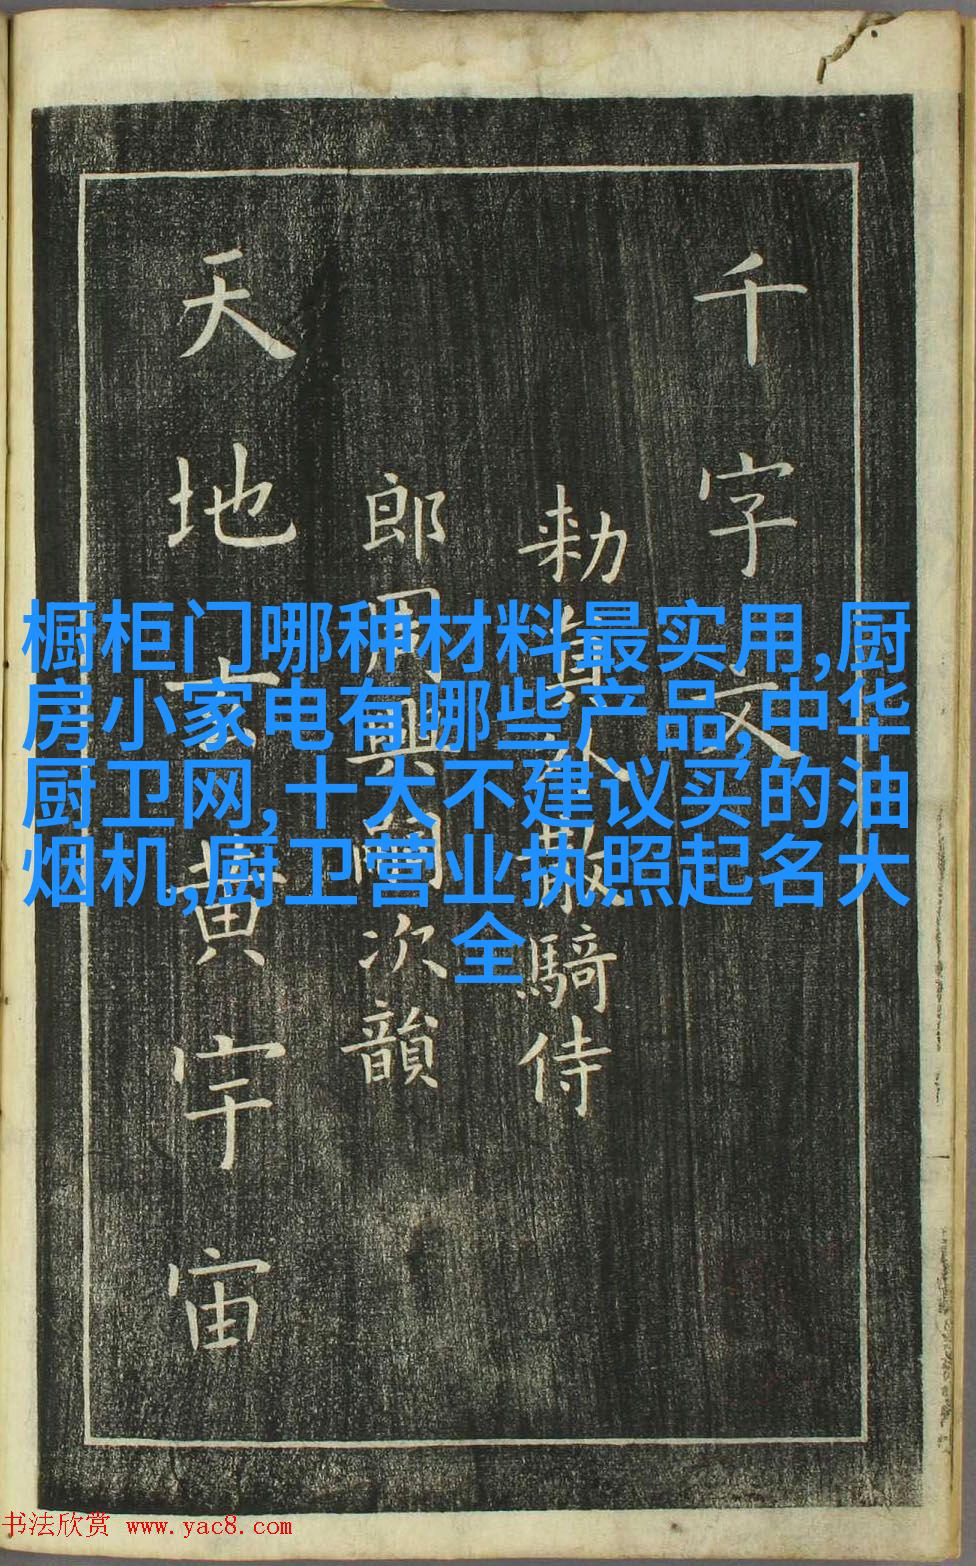 千字文
勑員外散騎侍
郎周興嗣次韻
天地玄黃宇宙
橱柜门哪种材料最实用,厨
房小家电有哪些产品,中华
厨卫网,十大不建议买的油
烟机,厨卫营业执照起名大
全
书法欣赏 www.yac8.com